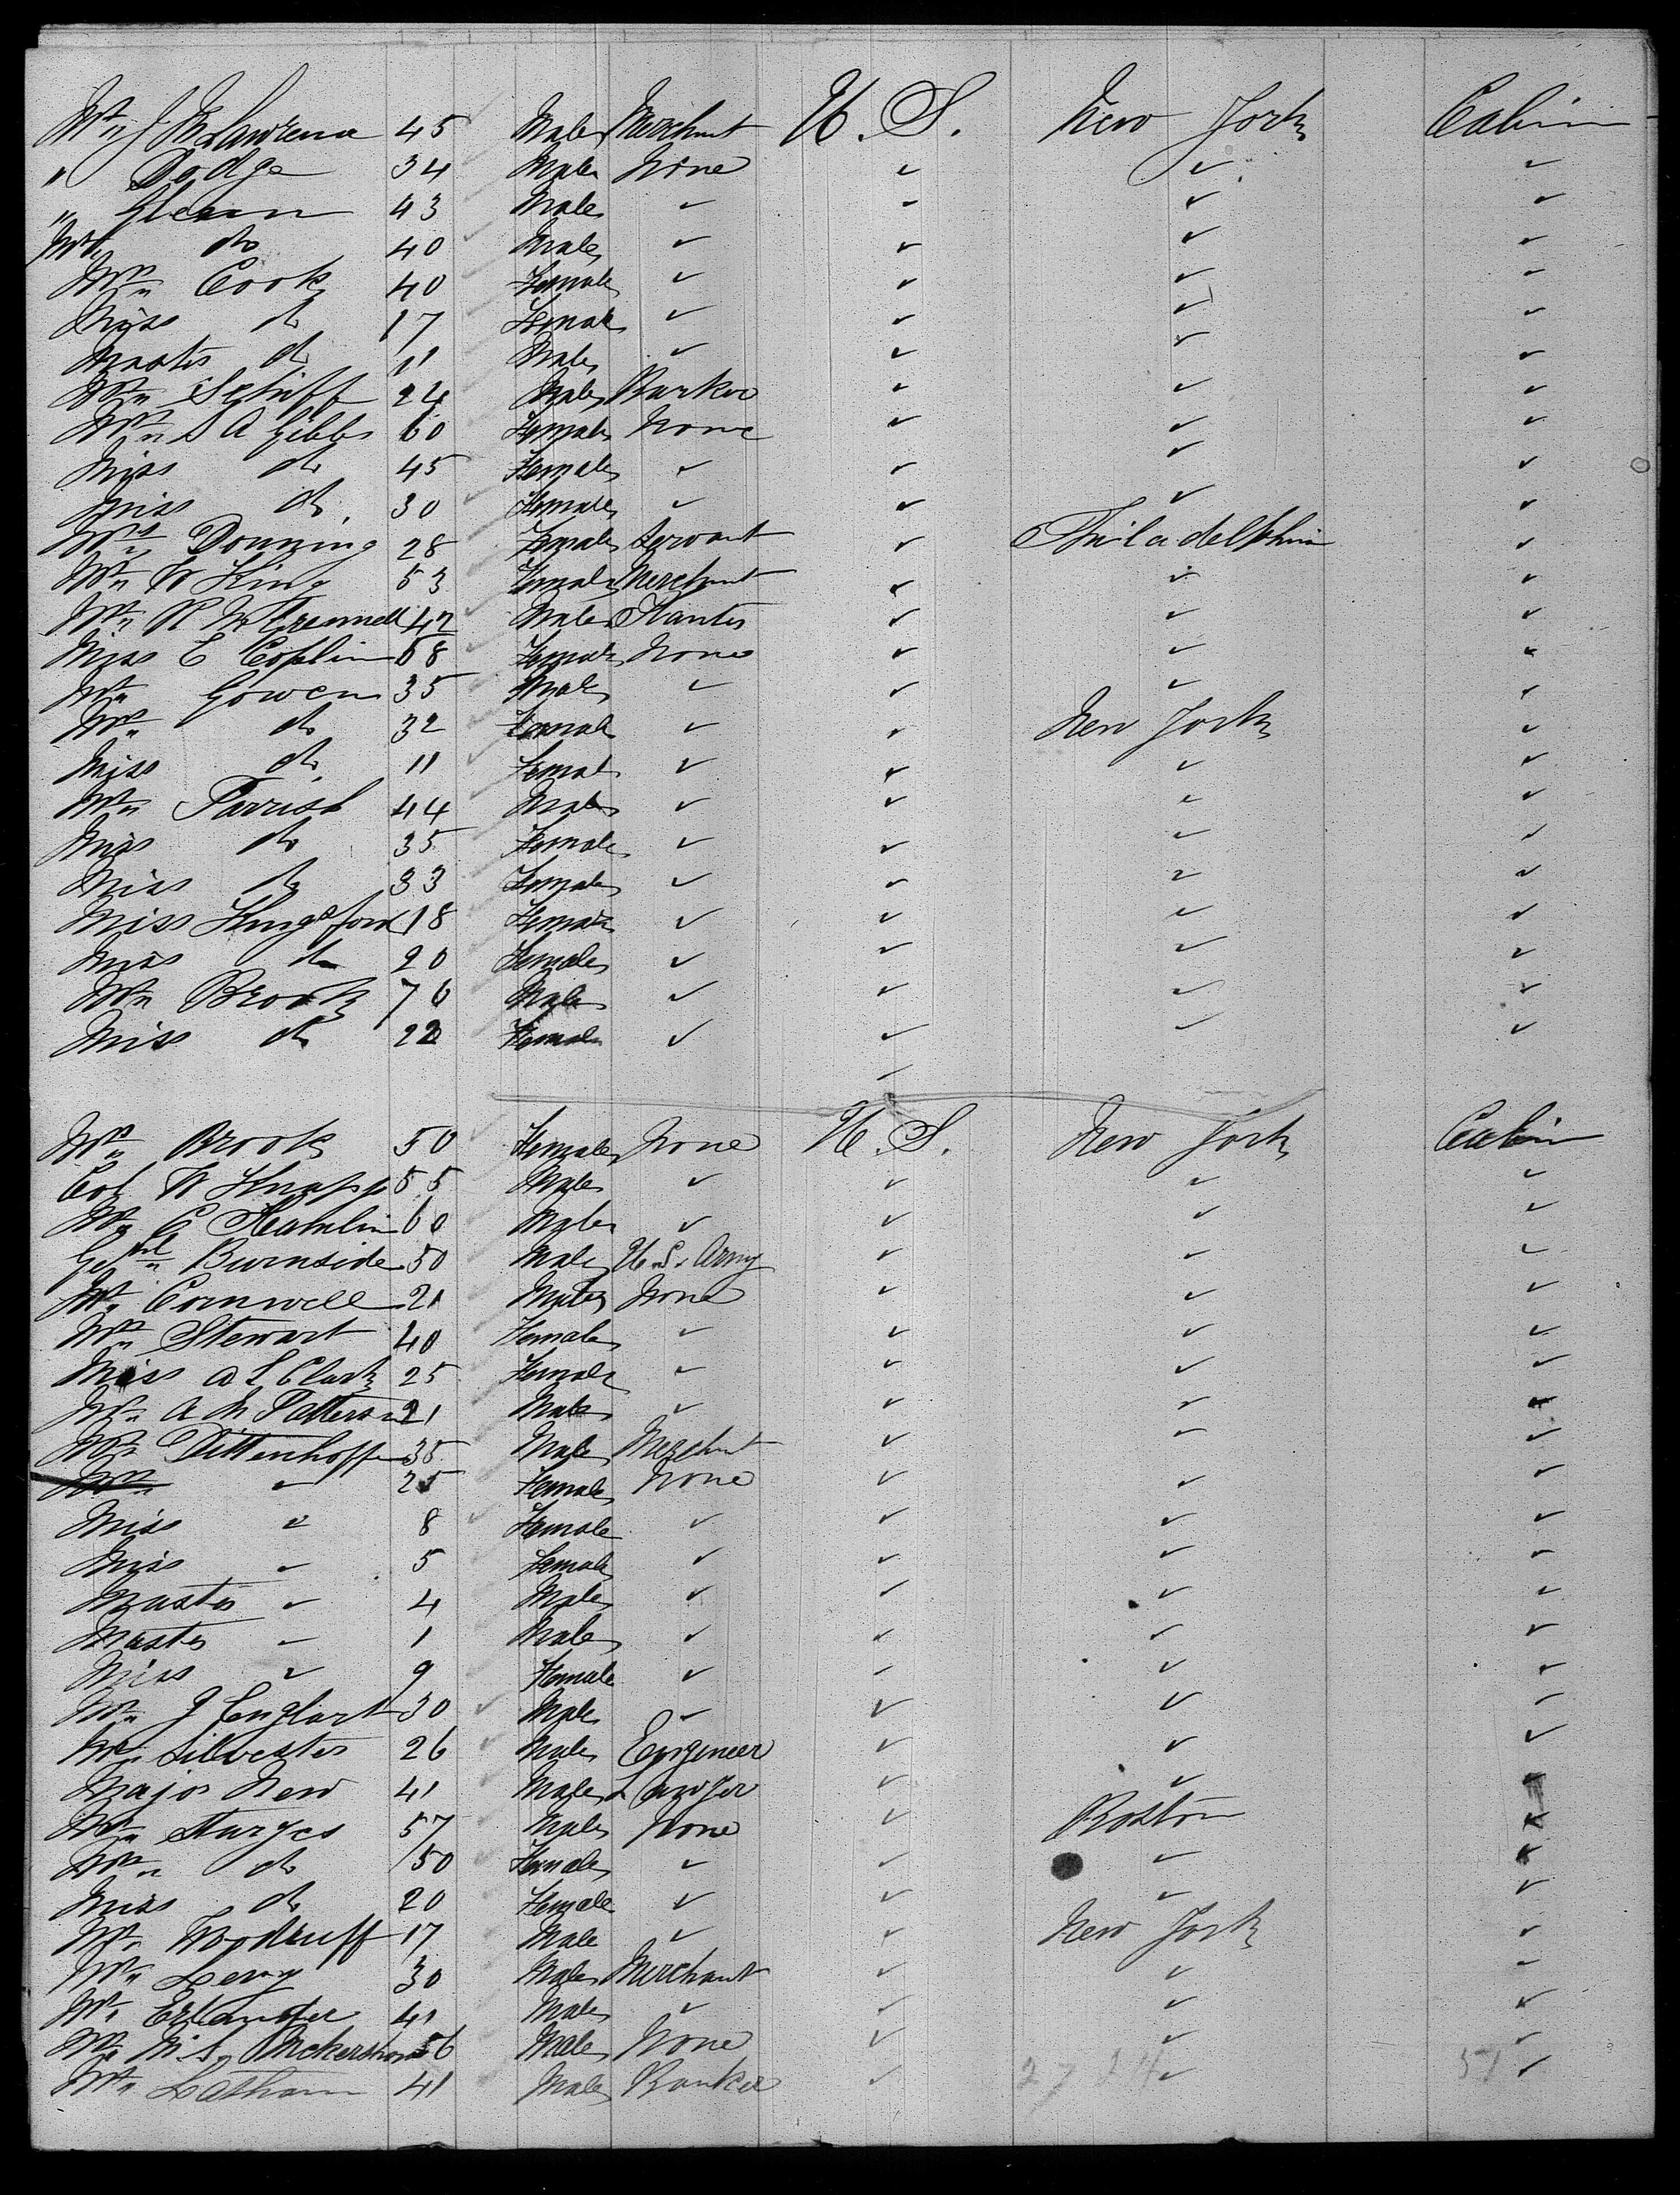 Mr J M Lawrence 45 Male Merchant U. S. New York Cabin
" Dodge 34 Male None ✓ ✓ ✓
" Gleann 43 Male ✓ ✓ ✓ ✓
do 40 Male ✓ ✓ ✓ ✓
Mrs Cook 40 Female ✓ ✓ ✓ ✓
Miss do 17 Female ✓ ✓ ✓ ✓
Master do 11 Male ✓ ✓ ✓ ✓
Mr Schiff 24 Male Banker ✓ ✓ ✓
Mrs S A Gibbs 60 Female None ✓ ✓ ✓
Miss do 45 Female ✓ ✓ ✓ ✓
Miss do 30 Female ✓ ✓ ✓ ✓
Mrs Donning 28 Female Servant ✓ Philadelphia ✓
Mr W King 53 Female Merchant ✓ ✓ ✓
Mr R M 42 Male Planter ✓ ✓ ✓
Miss E Coplin 68 Female None ✓ ✓ ✓
Mr Gowen 35 Male ✓ ✓ ✓ ✓
Mrs do 32 Female ✓ ✓ New York ✓
Miss do 11 Female ✓ ✓ ✓ ✓
Mr Parrish 44 Male ✓ ✓ ✓ ✓
Miss do 35 Female ✓ ✓ ✓ ✓
Miss do 33 Female ✓ ✓ ✓ ✓
Miss Kingsford 18 Female ✓ ✓ ✓ ✓
Miss do 20 Female ✓ ✓ ✓ ✓
Mr Brook 76 Male ✓ ✓ ✓ ✓
Miss do 22 Female ✓ ✓ ✓ ✓
✓
Mrs Brook 50 Female None U. S. New York Cabin
Col W Knapp 55 Male ✓ ✓ ✓ ✓
Mr C Hamlin 60 Male ✓ ✓ ✓ ✓
Genl Burnside 50 Male U. S. Army ✓ ✓ ✓
Mr Cornwell 21 Male None ✓ ✓ ✓
Mrs Stewart 40 Female ✓ ✓ ✓ ✓
Miss A L Clark 25 Female ✓ ✓ ✓ ✓
Mr A M Patterson 21 Male ✓ ✓ ✓ ✓
Mr Dittenhoffer 35 Male Merchant ✓ ✓ ✓
Mrs ✓ 25 Female None ✓ ✓ ✓
Miss ✓ 8 Female ✓ ✓ ✓ ✓
Miss ✓ 5 Female ✓ ✓ ✓ ✓
Master ✓ 4 Male ✓ ✓ ✓ ✓
Master ✓ 1 Male ✓ ✓ ✓ ✓
Miss ✓ 9 Female ✓ ✓ ✓ ✓
Mr J Englart 30 Male ✓ ✓ ✓ ✓
Mr Silvester 26 Male Engineer ✓ ✓ ✓
Major New 41 Male Lawyer ✓ ✓ ✓
Mr Sturges 57 Male None ✓ Boston ✓
Mrs do 50 Female ✓ ✓ ✓ ✓
Miss do 20 Female ✓ ✓ ✓ ✓
Mr Woodruff 17 Male ✓ ✓ New York ✓
Mr Levy 30 Male Merchant ✓ ✓ ✓
Mr Erlander 41 Male ✓ ✓ ✓ ✓
Mr M S 56 Male None ✓ ✓ ✓
Mr Latham 41 Male Banker ✓ 27 24 ✓ 51 ✓